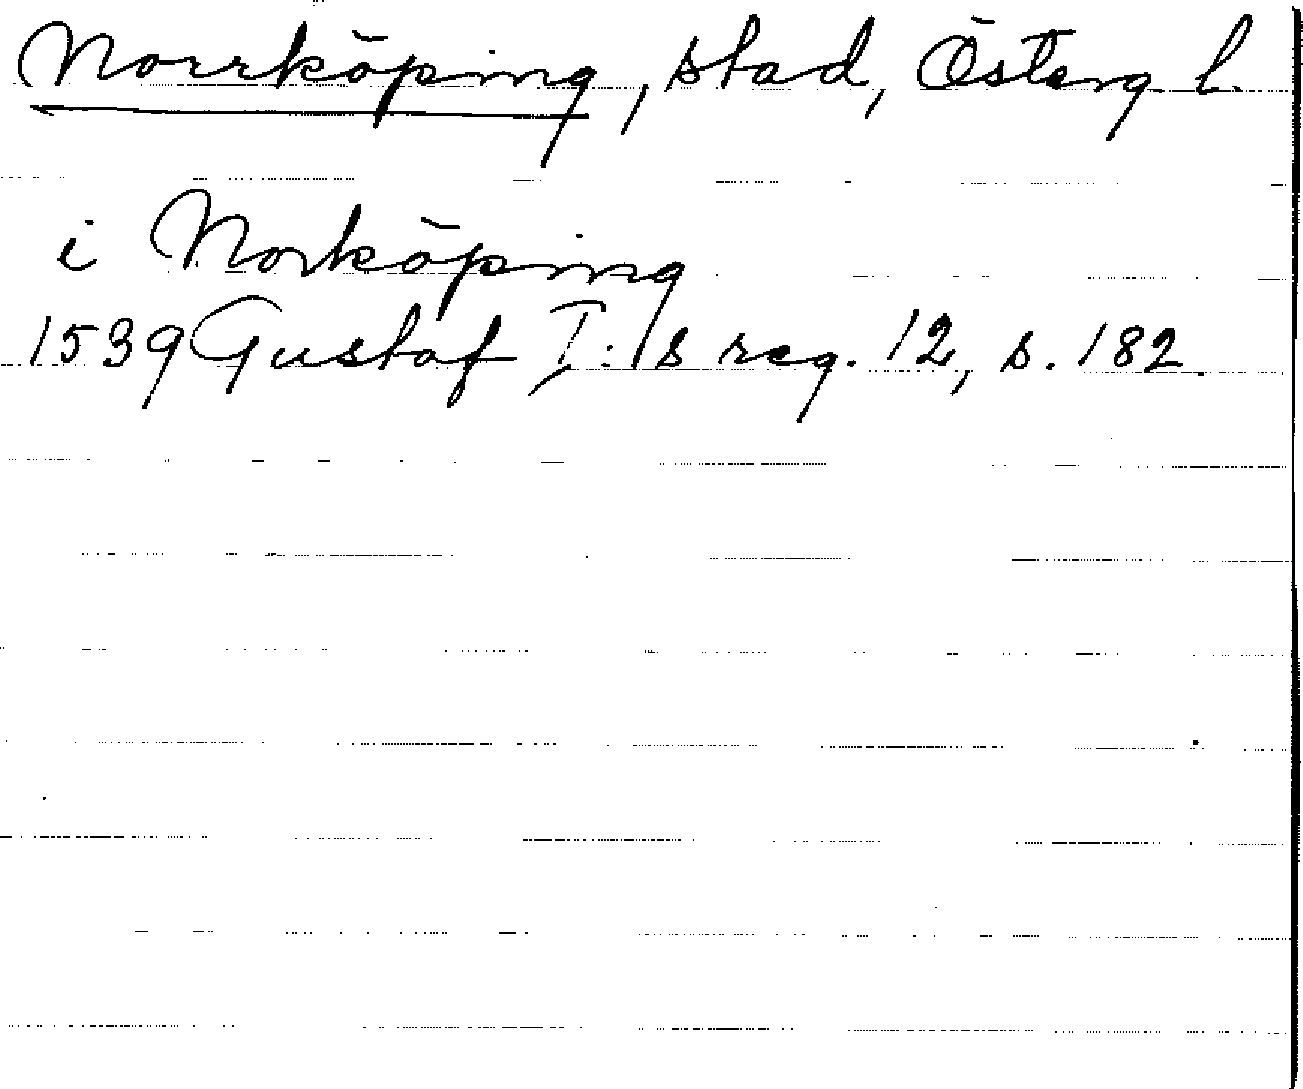 Norrköping, stad, Österg. l.
i Norköping
1539 Gustaf I:s reg. 12, s. 182.